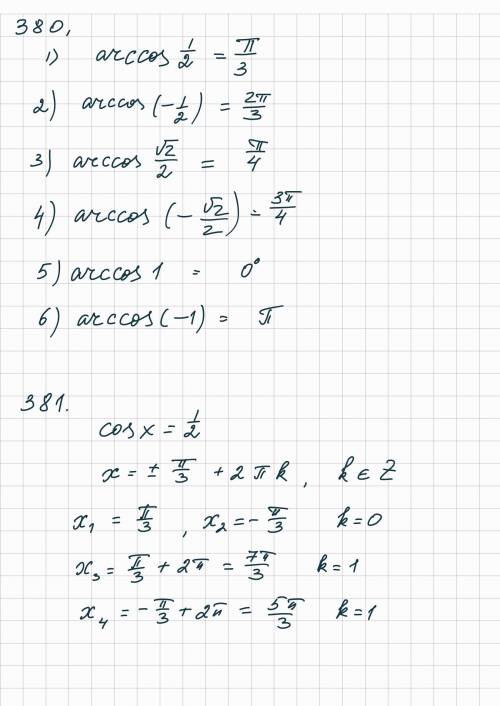 380,
1) arccos 1/2 = π/3
2) arccos (-1/2) = 2π/3
3) arccos √2/2 = π/4
4) arccos (-√2/2) = 3π/4
5) arccos 1 = 0°
6) arccos (-1) = π
381.
cos x = 1/2
x = ± π/3 + 2πk, k ∈ Z
x₁ = π/3, x₂ = -π/3 k=0
x₃ = π/3 + 2π = 7π/3 k=1
x₄ = -π/3 + 2π = 5π/3 k=1